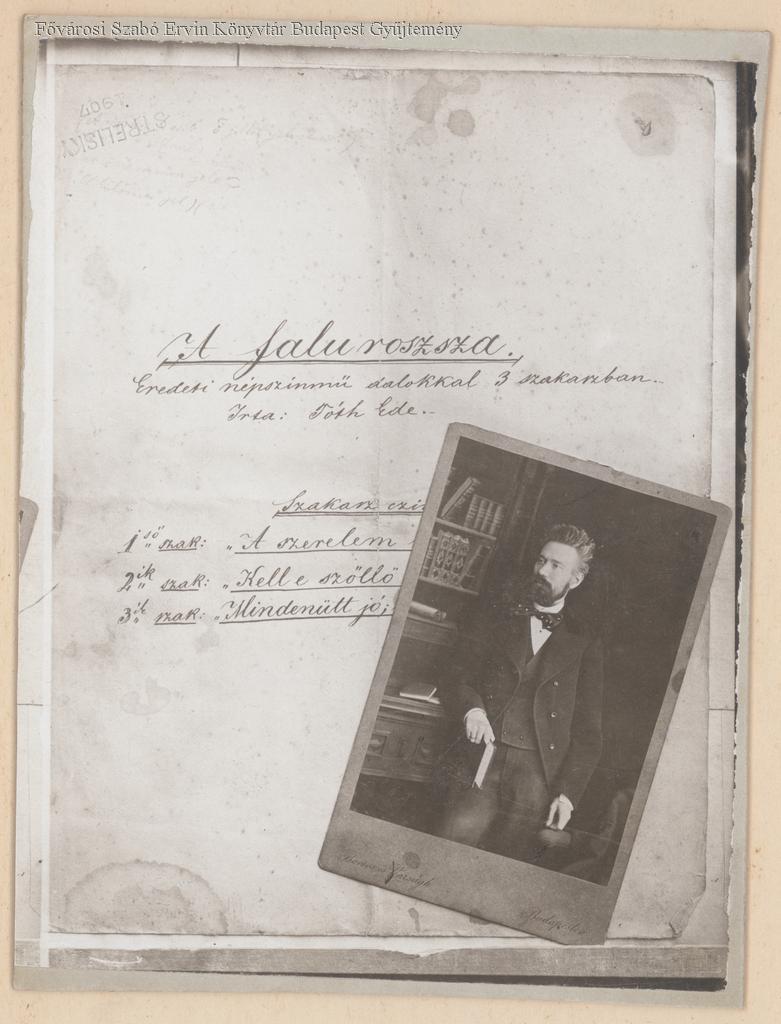 Fővárosi Szabó Ervin Könyvtár Budapest Gyűjtemény
STRELISKY
1907
A falu roszsza.
Eredeti népszinmü dalokkal 3 szakaszban.
Irta: Tóth Ede.
Szakasz czi
1ső szak: „A szerelem
2ik szak: „Kell e szöllö
3ik szak: „Mindenütt jó;